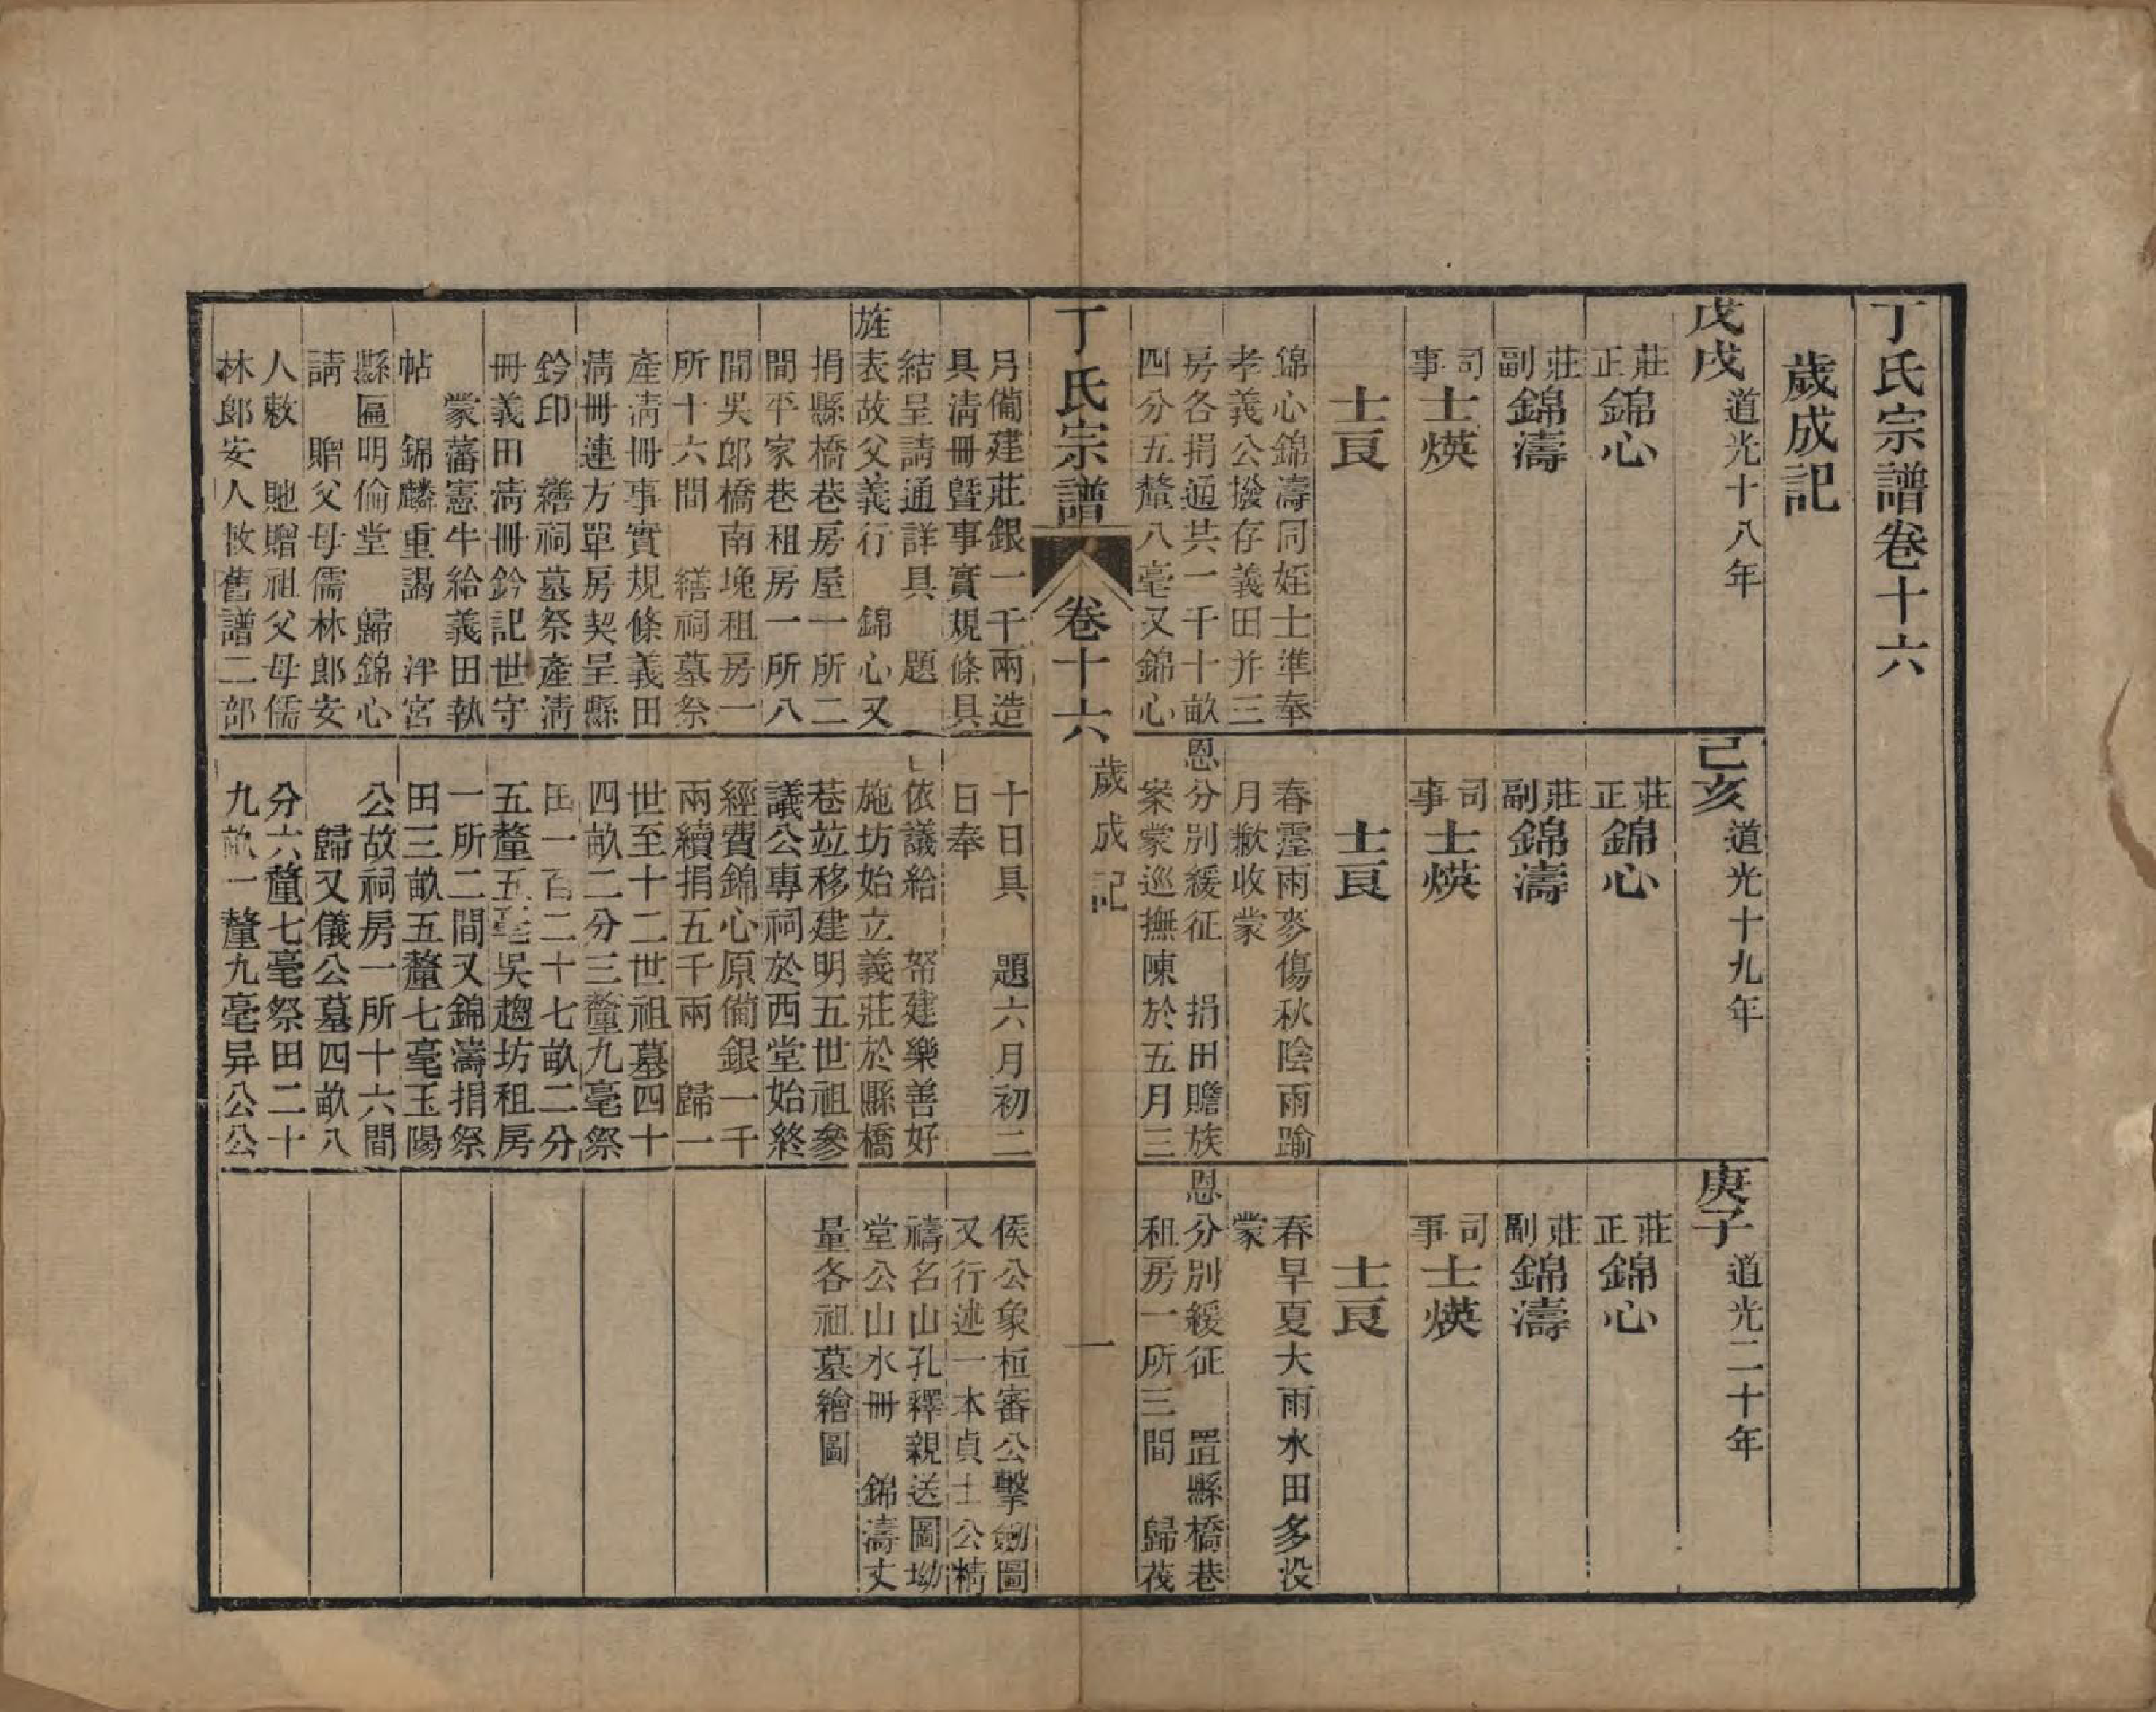 丁氏宗譜卷十六
歲成記
戊戌 道光十八年
莊正 錦心
莊副 錦濤
司事 士煐
士良
錦心錦濤同姪士準奉
孝義公撥存義田并三
房各捐通共一千十畝
四分五釐八毫又錦心
月備建莊銀一千兩造
具清冊暨事實規條具
結呈請通詳具 題
旌表故父義行 錦心又
捐縣橋巷房屋一所二
間平家巷租房一所八
間吳郎橋南堍租房一
所十六間 繕祠墓祭
產清冊事實規條義田
清冊連方單房契呈縣
鈐印 繕祠墓祭產清
冊義田清冊鈐記世守
蒙藩憲牛給義田執
帖 錦麟重謁 泮宮
縣匾明倫堂 歸錦心
請 贈父母儒林郎安
人敕 貤贈祖父母儒
林郎安人敕舊譜二部
己亥 道光十九年
莊正 錦心
莊副 錦濤
司事 士煐
士良
春霪雨麥傷秋陰雨踰
月歉收蒙
恩分別緩征 捐田贍族
案蒙巡撫陳於五月三
十日具 題六月初二
日奉
依議給 帑建樂善好
施坊始立義莊於縣橋
巷竝移建明五世祖參
議公專祠於西堂始終
經費錦心原備銀一千
兩續捐五千兩 歸一
世至十二世祖墓四十
四畝二分三釐九毫祭
田一百二十七畝二分
五釐五毫吳趨坊租房
一所二間又錦濤捐祭
田三畝五釐七毫玉陽
公故祠房一所十六間
歸又儀公墓四畝八
分六釐七毫祭田二十
九畝一釐九毫异公公
庚子 道光二十年
莊正 錦心
莊副 錦濤
司事 士煐
士良
春旱夏大雨水田多没
蒙
恩分別緩征 置縣橋巷
租房一所三間 歸茂
侯公象桓審公擊劒圖
又行述一本貞士公精
禱名山孔釋親送圖坳
堂公山水冊 錦濤丈
量各祖墓繪圖
丁氏宗譜 卷十六 歲成記 一